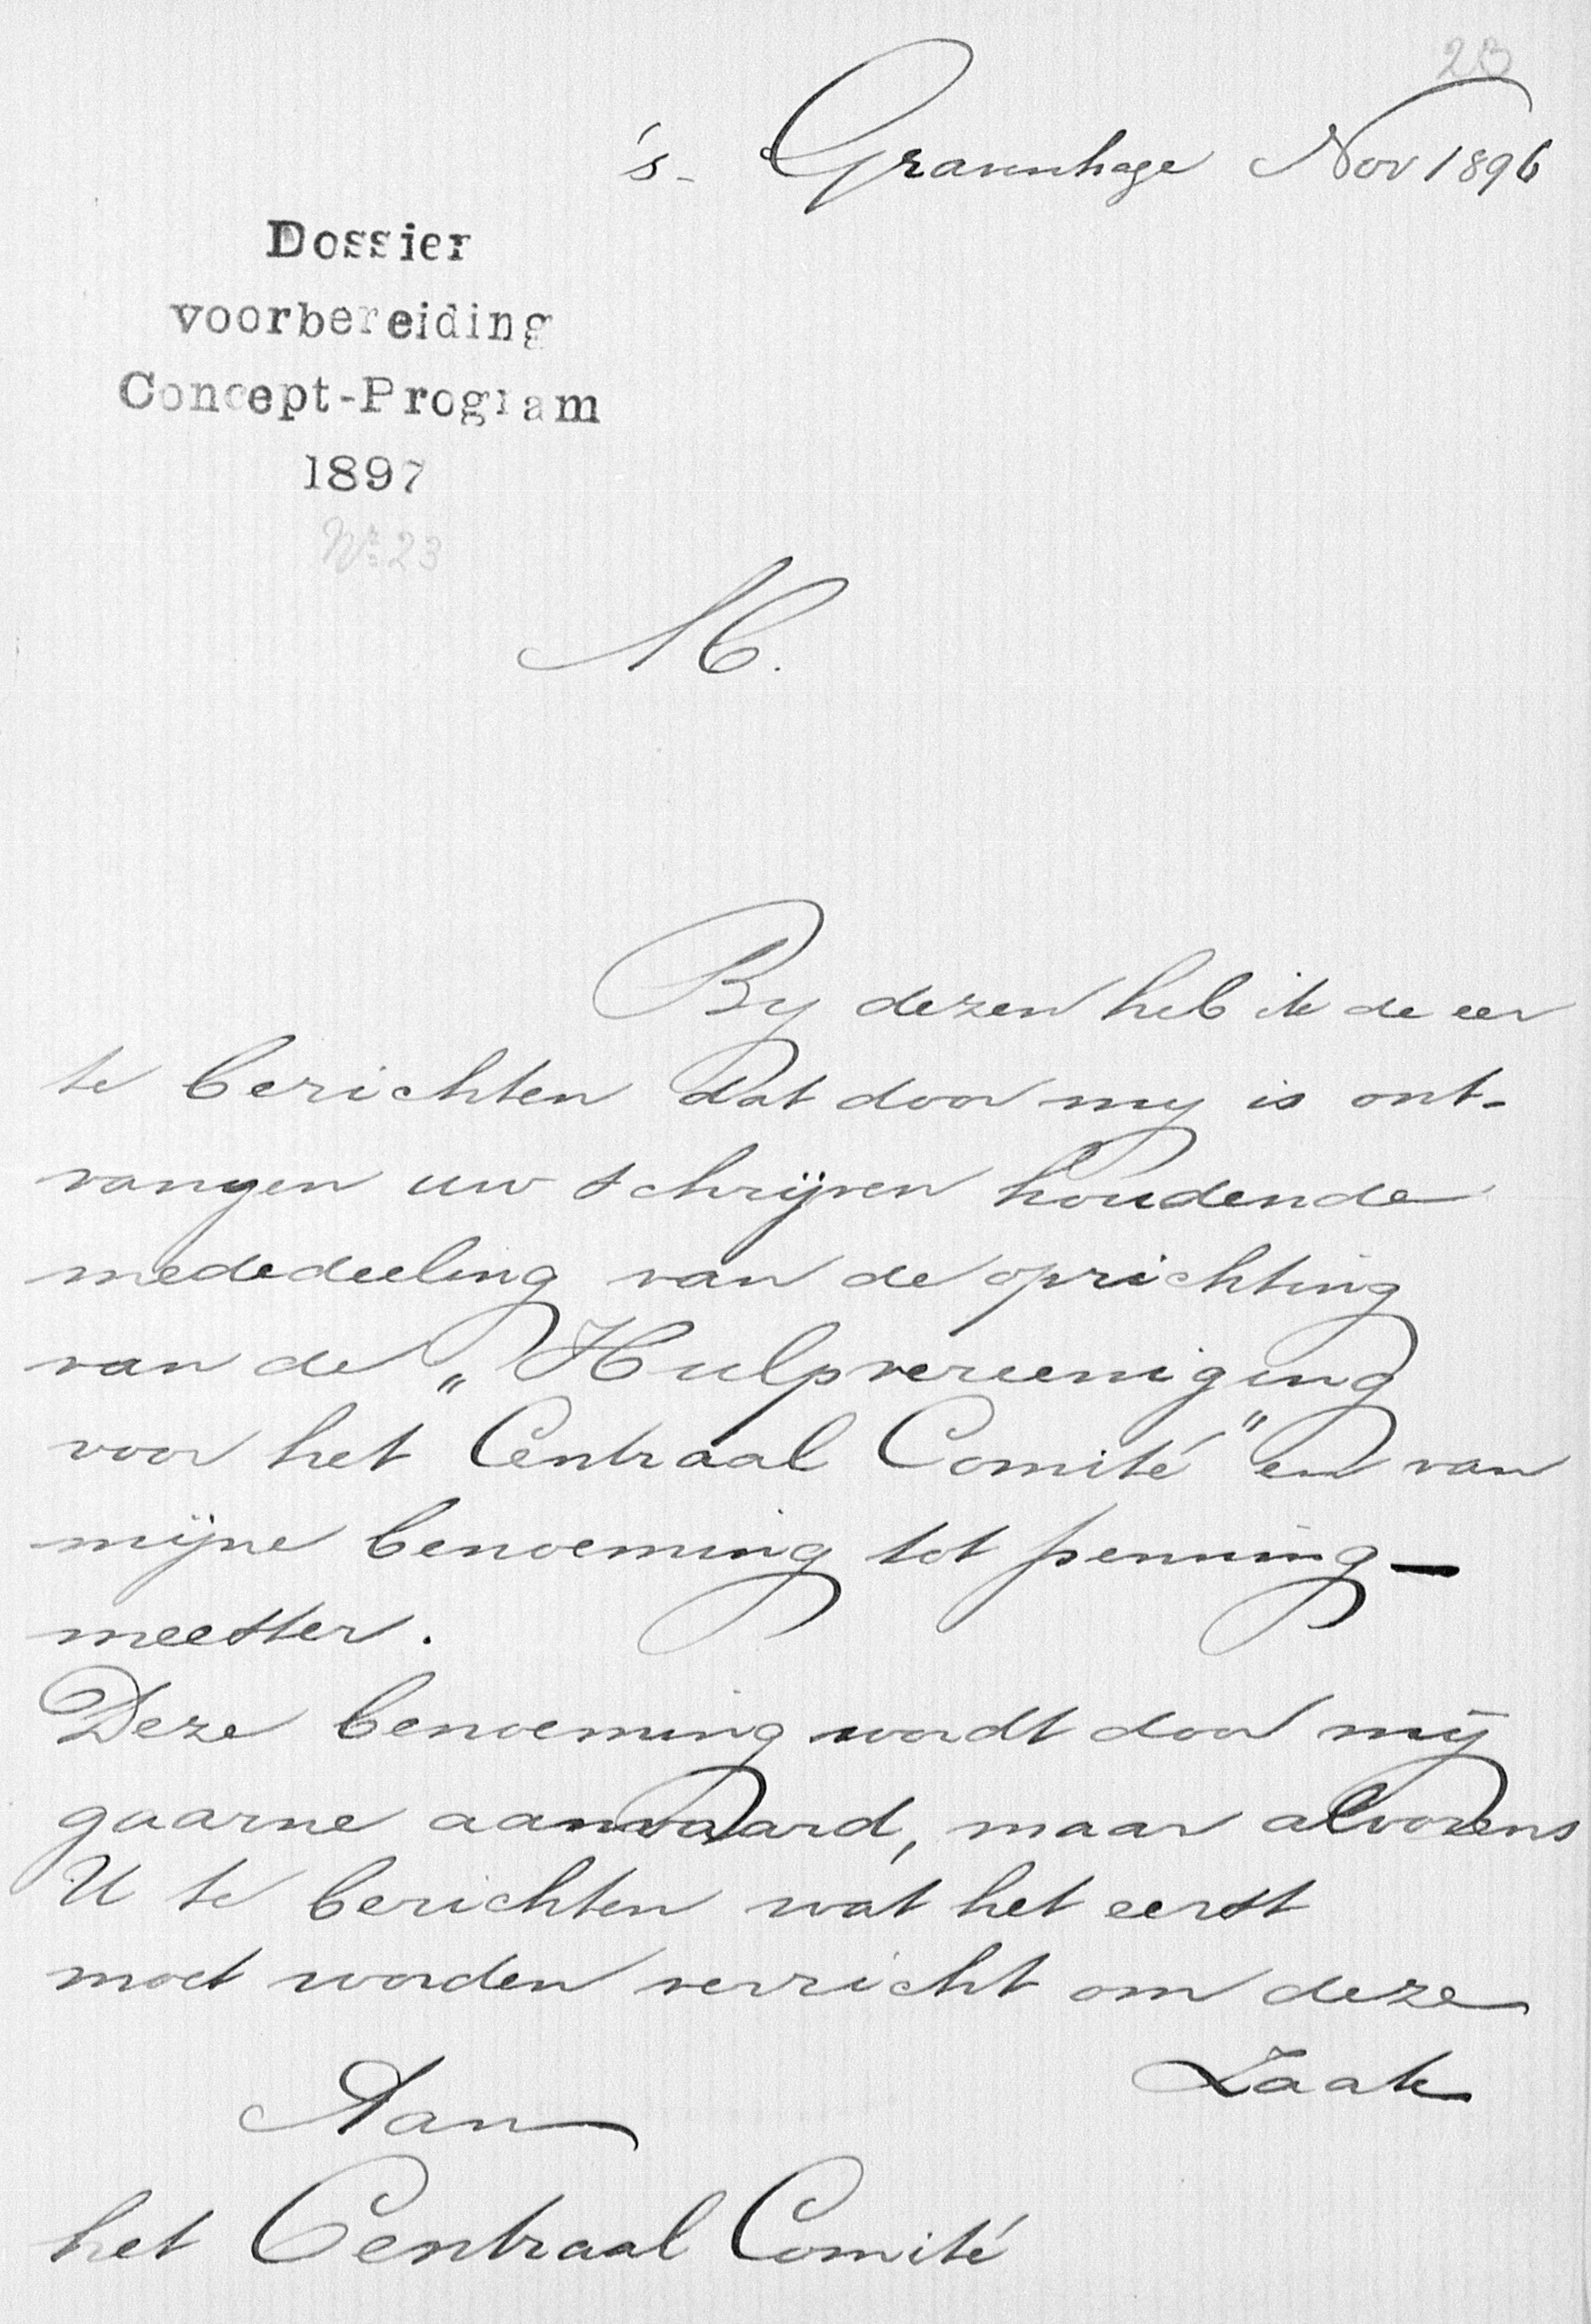 23
's- Gravenhage Nov 1896
Dossier
voorbereiding
Concept-Program
1897
No 23
M.
By dezen heb ik de eer
te berichten dat door my is ont-
vangen uw schrijven houdende
mededeeling van de oprichting
van de „Hulpvereeniging
voor het Centraal Comité" en van
mijne benoeming tot penning-
meester.
Deze benoeming wordt door mij
gaarne aanvaard, maar alvorens
U te berichten wat het eerst
moet worden verricht om deze
Zaak
Aan
het Centraal Comité